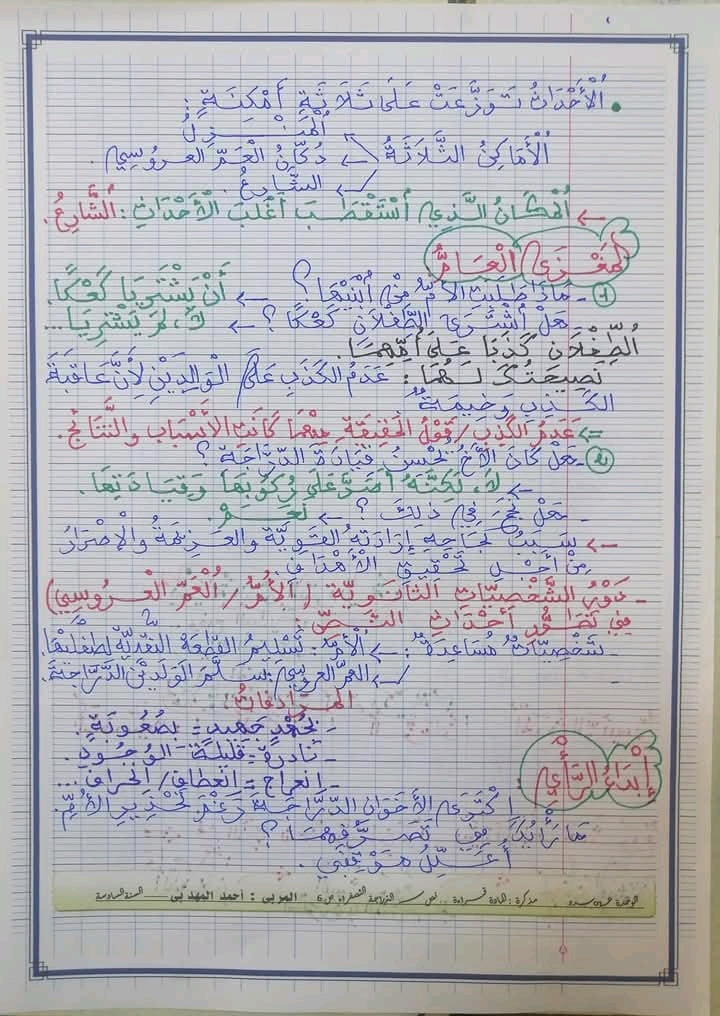 • اُلْأَحْدَاثُ تَوَزَّعَتْ عَلَى ثَلَاثَةِ أَمْكِنَةٍ :
اُلْمَنْزِلُ
اُلْأَمَاكِنُ الثَّلَاثَةُ ← دُكَّانُ الْعَمِّ العروسِيِّ .
← الشَّارِعُ .
← اُلْمَكَانُ الَّذِي اُسْتَقْطَبَ أَغْلَبَ الْأَحْدَاثِ : الشَّارِعُ .
المَغْزَى الْعَامُّ
1 - مَاذَا طَلَبَتِ الأُمُّ مِنْ اُبْنَيْهَا ؟ ← أَنْ يَشْتَرِيَا كَعْكًا.
- هَلْ اُشْتَرَى الطِّفْلَانِ كَعْكًا ؟ ← لَا، لَمْ يَشْتَرِيَا...
اُلطِّفْلَانِ كَذَبَا عَلَى أُمِّهِمَا.
نَصِيحَتُكَ لَهُمَا : عَدَمُ الكَذِبِ عَلَى الْوَالِدَيْنِ لِأَنَّ عَاقِبَةَ
الكَذِبِ وَخِيمَةٌ
=> عَدَمُ الْكَذِبِ / قَوْلُ الْحَقِيقَةِ مَهْمَا كَانَتِ الأَسْبَابُ وَالنَّتَائِجُ.
2 - هَلْ كَانَ الأَخُ يُحْسِنُ قِيَادَةَ الدَّرَّاجَةِ ؟
← لَا، لَكِنَّهُ أَصَرَّ عَلَى رُكُوبِهَا وَقِيَادَتِهَا.
- هَلْ نَجَحَ فِي ذَلِكَ ؟ ← نَعَمْ.
← سَبَبُ نَجَاحِهِ إِرَادَتُهُ القَوِيَّةُ وَالعَزِيمَةُ وَالْإِصْرَارُ
مِنْ أَجْلِ تَحْقِيقِ الأَهْدَافِ.
- دَوْرُ الشَّخْصِيَّاتِ الثَّانَوِيَّةِ (الأُمُّ / الْعَمُّ الْعَرُوسِيُّ)
فِي تَصَاعُدِ أَحْدَاثِ النَّصِّ :
- شَخْصِيَّاتٌ مُسَاعِدَةٌ : ← الْأُمُّ : تَسْلِيمُ القِطْعَةِ النَّقْدِيَّةِ لِطِفْلَيْهَا
- ← العمُّ العروسِيُّ : سَلَّمَ الوَلَدَيْنِ الدَّرَّاجَةَ.
المرادفات :
- بِجُهْدٍ جَهِيدٍ = بِصُعُوبَةٍ .
- نَادِرَة = قَلِيلَةُ الوُجُودِ .
- انعراج = انْعِطَاف / انحراف ...
إِبْدَاءُ الرَّأْيِ
اِكْتَرَى الأَخَوَانِ الدَّرَّاجَةَ رَغْمَ تَحْذِيرِ الأُمِّ.
مَا رَأْيُكَ فِي تَصَرُّفِهِمَا ؟
أُعَلِّلُ مَوْقِفِي .
مذكرة : المادة قراءة .. نص ص 6 المربي : أحمد المهذبي السنة السادسة